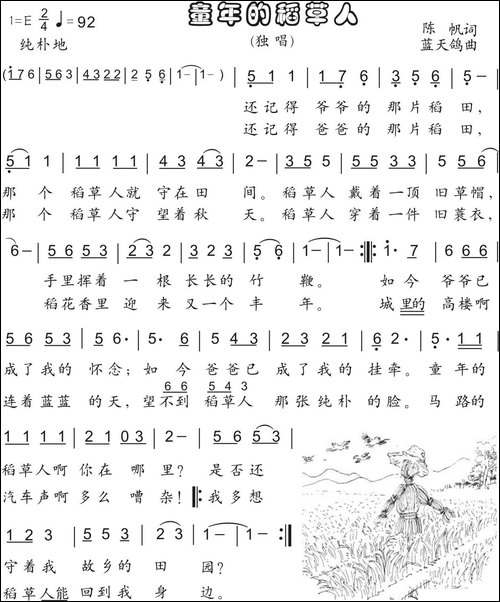 童年的稻草人
1=E 2/4 ♩=92
陈 帆词
纯朴地
(独唱)
蓝天鸽曲
(176 | 563 | 43 | 322 | 256 | 1-| 1-) | 511 | 176 | 356 |
还记得 爷爷的 那片稻 田,
还记得 爸爸的 那片稻 田,
511 | 1111 | 4343 | 2-| 355 | 5533 | 553 | 556 |
那 个 稻草人就 守在田 间。稻草人 戴着一顶 旧草帽,
那 个 稻草人守 望着秋 天。稻草人 穿着一件 旧蓑衣,
6-| 5653 | 213 | 4323 | 56 | 1-| 1-:||: 1·7 | 666 |
手里挥着 一 根 长长的 竹 鞭。 如 今 爷爷已
稻花香里 迎 来 又一个 丰 年。 城里的 高楼啊
5653 | 56 | 5·6 | 5·6 | 211 | 2343 | 2321 | 62· | 5·6 |
成了我的 怀念;如 今 爸爸已 成了我的 挂牵。童年的
66 543
连着蓝蓝 的天,望不到 稻草人 那张纯朴 的脸。马路的
1111 | 2103 | 2-| 5653 |
稻草人啊 你在 哪 里? 是否还
汽车声啊 多么 嘈 杂! 我多想
123 | 553 | 2103 | 1-:||
守着我 故乡的 田 园?
稻草人能 回到我 身 边。